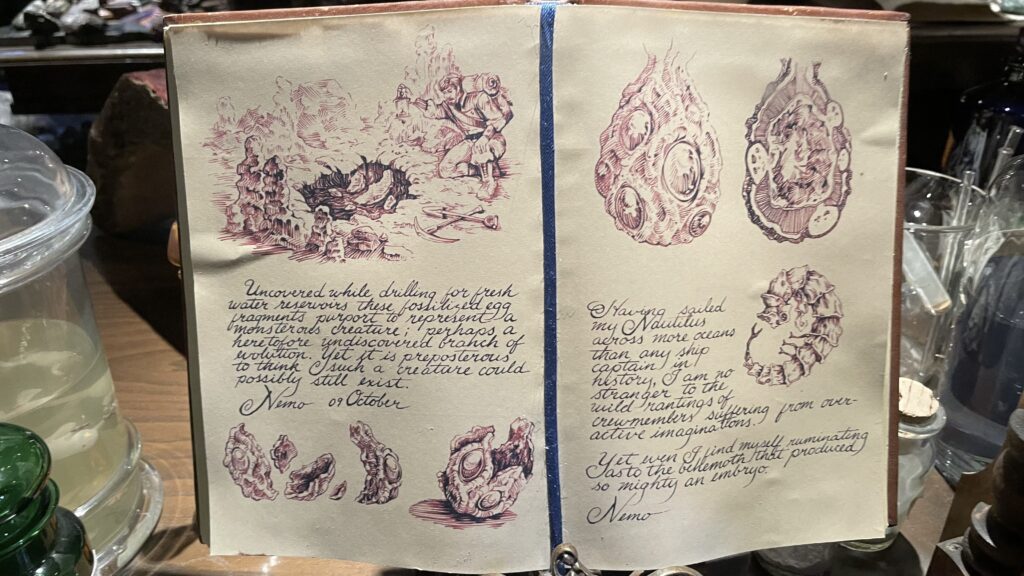 Uncovered while drilling for fresh
water reservers these fossilized egg
fragments purport to represent a
monsterous creature; perhaps a
heretofore undiscovered branch of
evolution. Yet it is preposterous
to think such a creature could
possibly still exist.
Nemo 09 October
Having sailed
my Nautilus
across more oceans
than any ship
captain in
history, I am no
stranger to the
wild rantings of
crewmembers suffering from over-
active imaginations.
Yet even I find myself ruminating
as to the behemoth that produced
so mighty an embryo.
Nemo